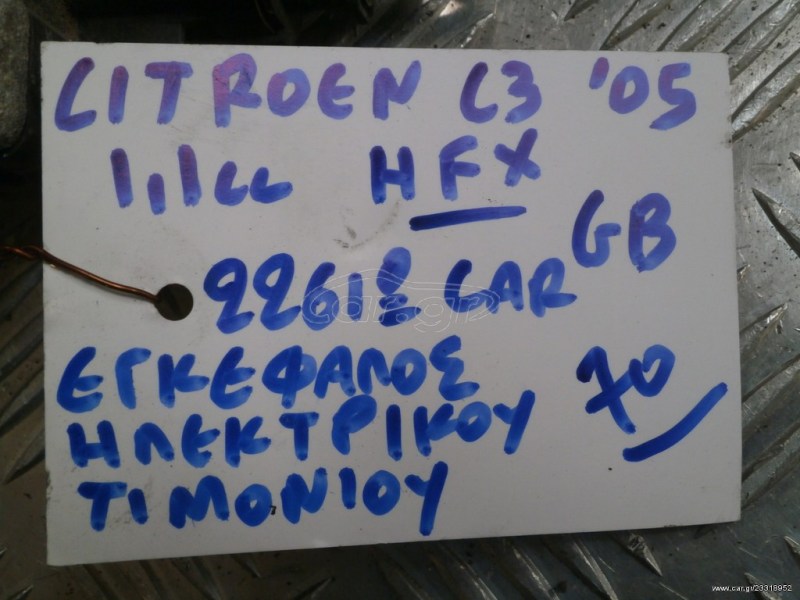 CITROEN C3 '05
1,1cc HFX
GB
CAR
ΕΓΚΕΦΑΛΟΣ
70
ΗΛΕΚΤΡΙΚΟΥ
ΤΙΜΟΝΙΟΥ
www.car.gr/23318952